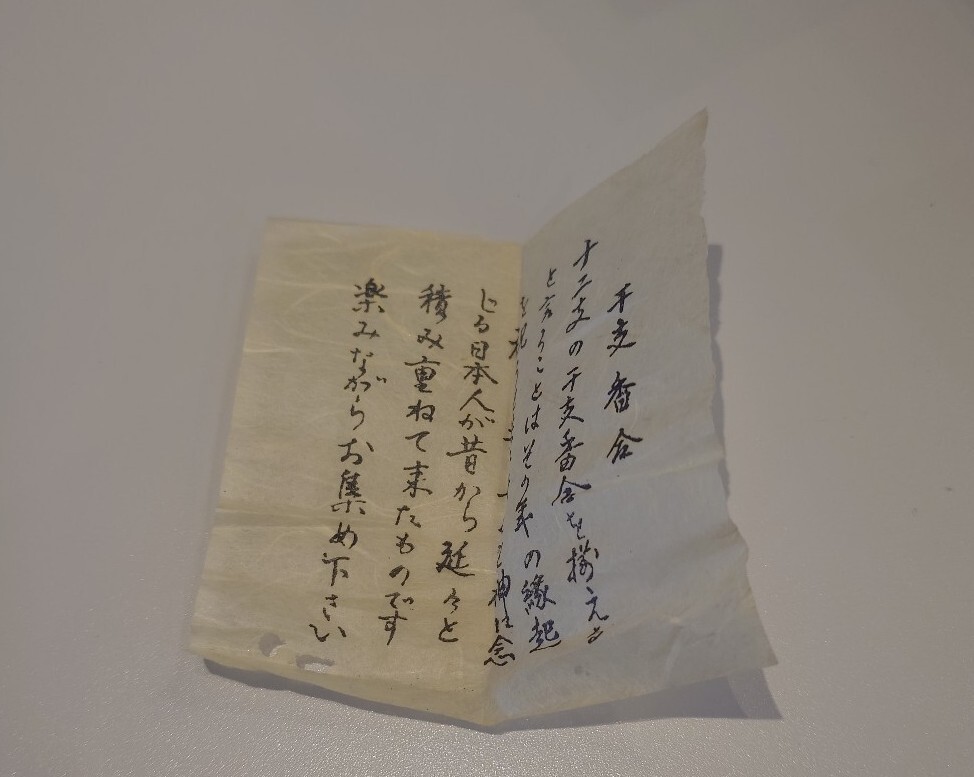 干支香合
十二支の干支香合を揃える
と言うことはその年の縁起
を祝 神に念
じる日本人が昔から延々と
積み重ねて来たものです
楽みながらお集め下さい